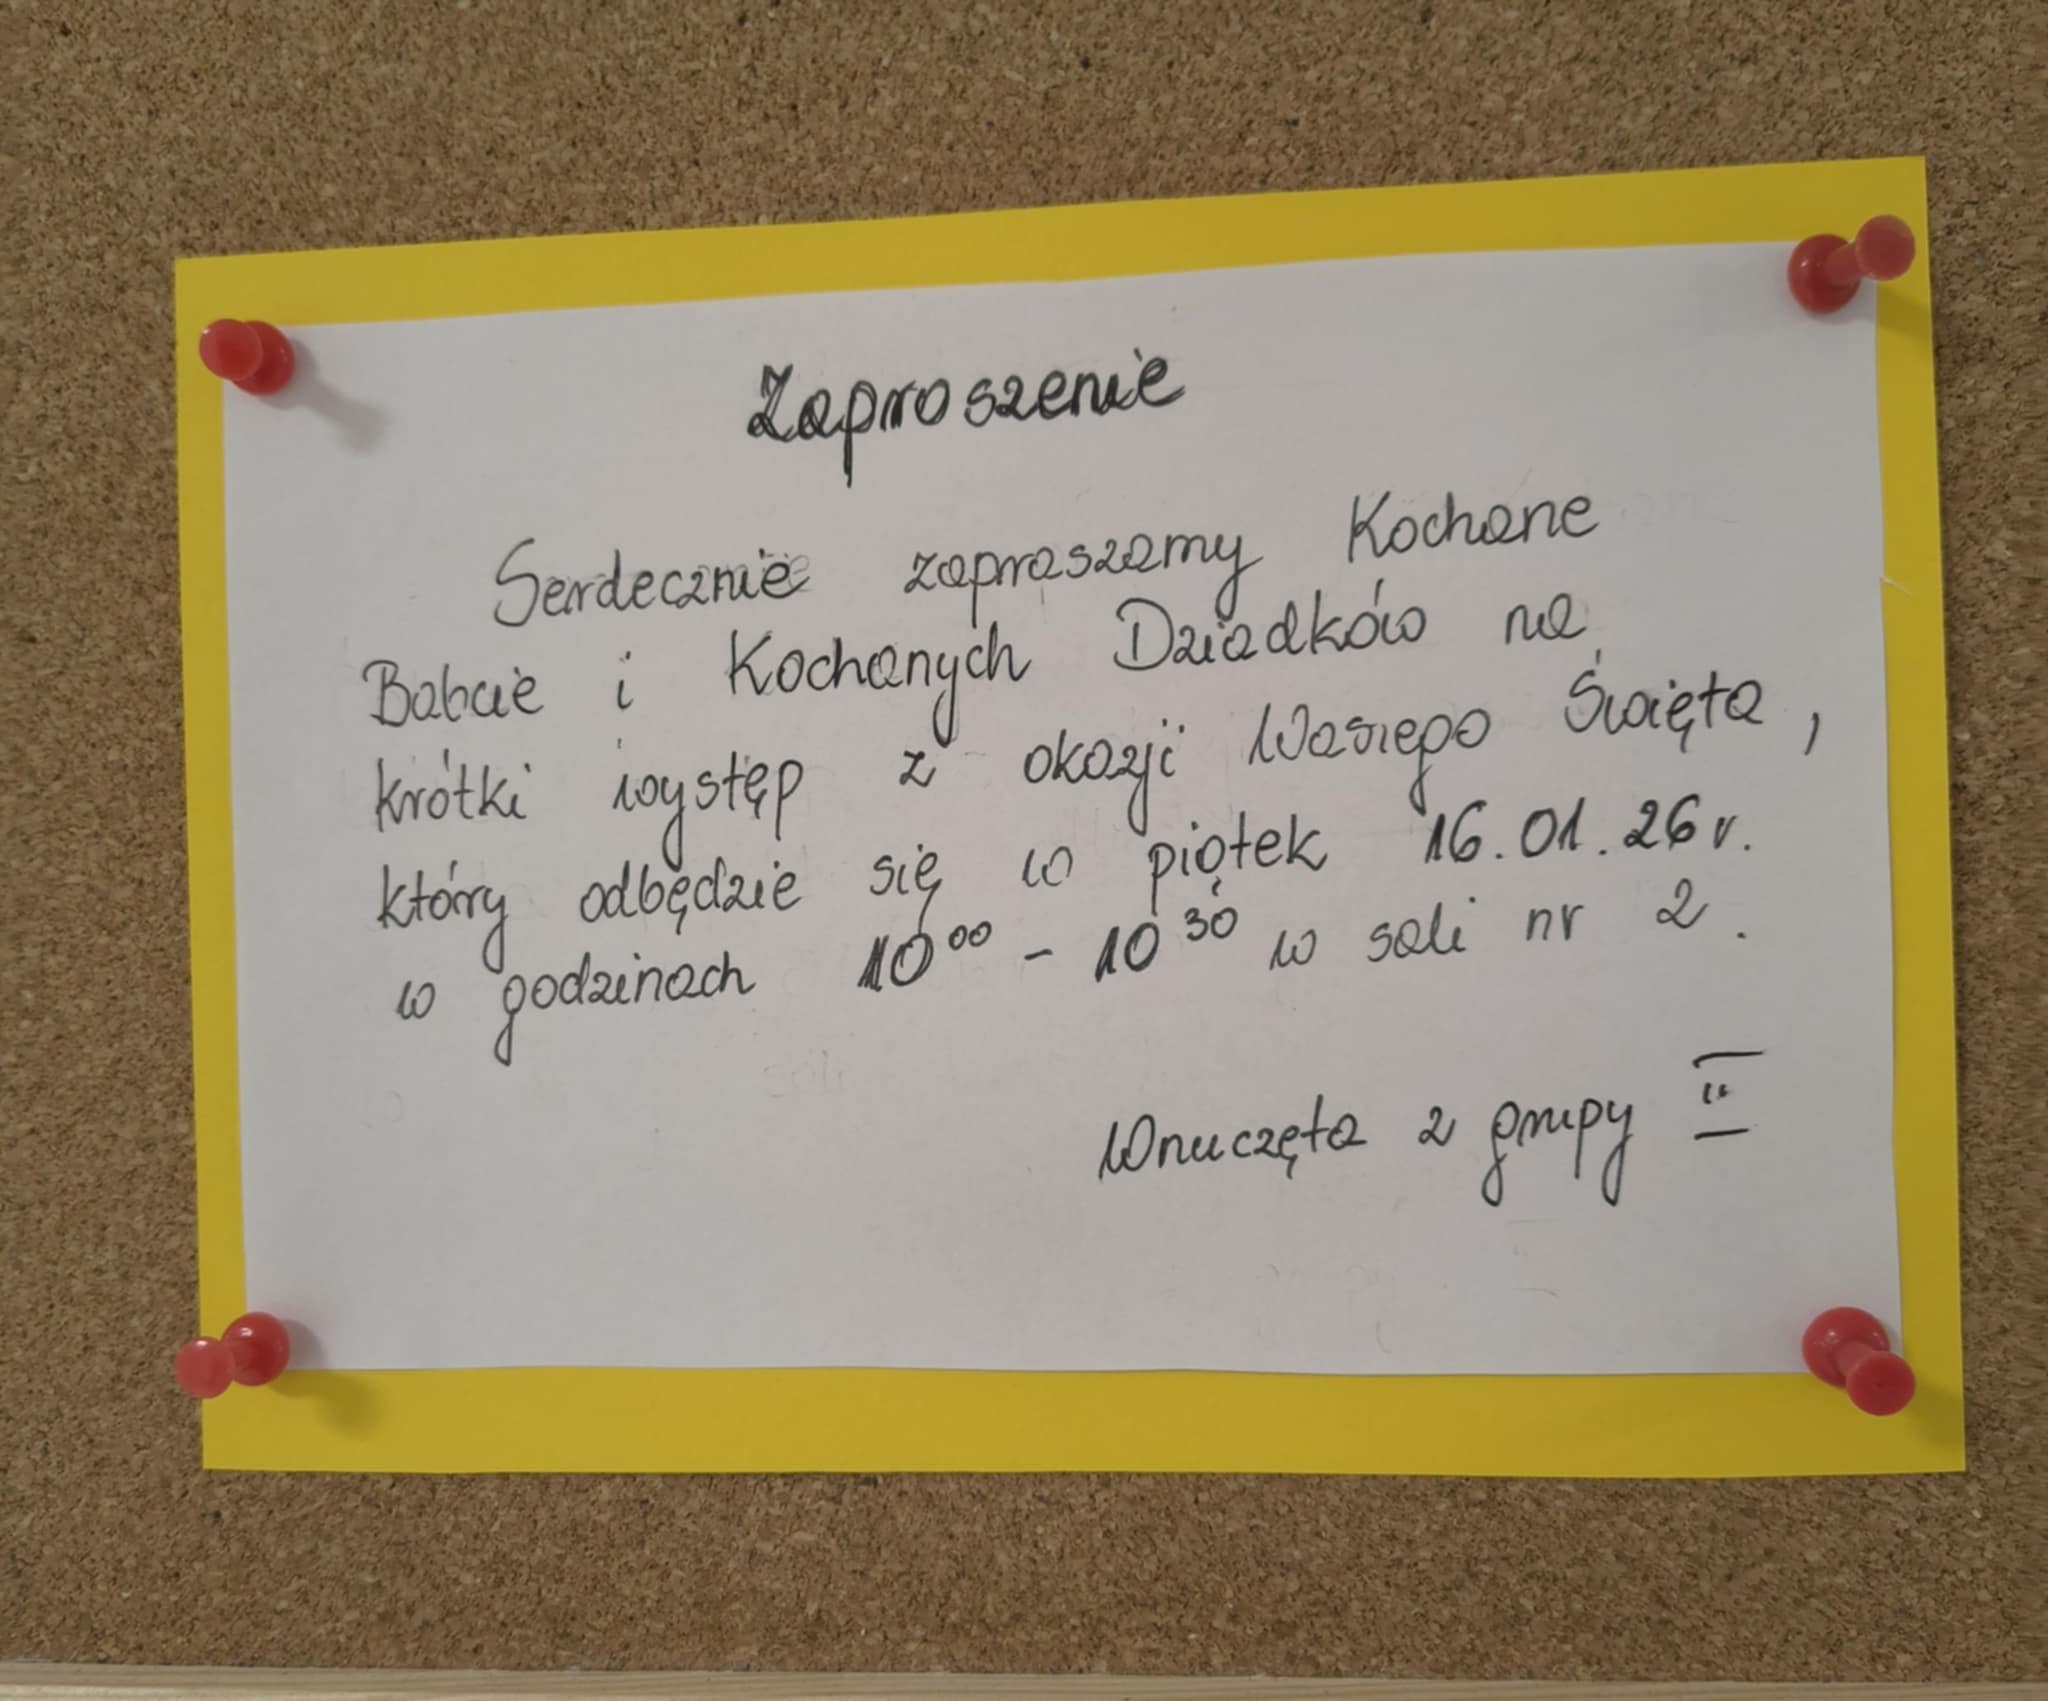 Zaproszenie
Serdecznie zapraszamy Kochane
Babcie i Kochanych Dziadków na
krótki występ z okazji Waszego Święta,
który odbędzie się w piątek 16.01.26r.
w godzinach 10⁰⁰ - 10³⁰ w sali nr 2.
Wnuczęta z grupy II